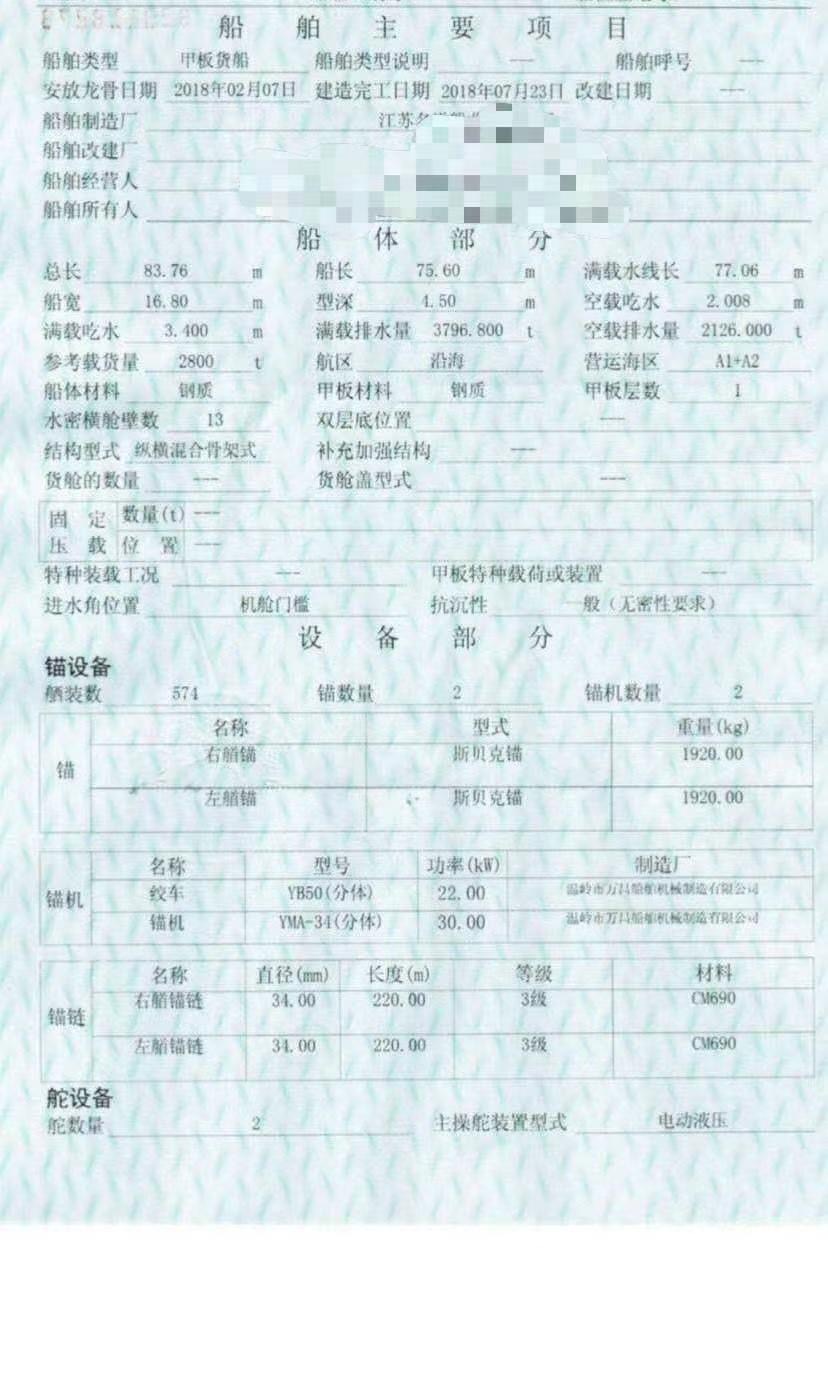 船 舶 主 要 项 目
船舶类型 甲板货船 船舶类型说明 --- 船舶呼号 ---
安放龙骨日期 2018年02月07日 建造完工日期 2018年07月23日 改建日期 ---
船舶制造厂 江苏
船舶改建厂
船舶经营人
船舶所有人
船 体 部 分
总长 83.76 m 船长 75.60 m 满载水线长 77.06 m
船宽 16.80 m 型深 4.50 m 空载吃水 2.008 m
满载吃水 3.400 m 满载排水量 3796.800 t 空载排水量 2126.000 t
参考载货量 2800 t 航区 沿海 营运海区 A1+A2
船体材料 钢质 甲板材料 钢质 甲板层数 1
水密横舱壁数 13 双层底位置 ---
结构型式 纵横混合骨架式 补充加强结构 ---
货舱的数量 --- 货舱盖型式 ---
固 定 数量(t) ---
压 载 位 置 ---
特种装载工况 --- 甲板特种载荷或装置 ---
进水角位置 机舱门槛 抗沉性 一般（无密性要求）
设 备 部 分
锚设备
舾装数 574 锚数量 2 锚机数量 2
名称 型式 重量(kg)
锚
右艏锚 斯贝克锚 1920.00
左艏锚 斯贝克锚 1920.00
名称 型号 功率(kW) 制造厂
锚机
绞车 YB50(分体) 22.00 温岭市万昌船舶机械制造有限公司
锚机 YMA-34(分体) 30.00 温岭市万昌船舶机械制造有限公司
名称 直径(mm) 长度(m) 等级 材料
锚链
右艏锚链 34.00 220.00 3级 CM690
左艏锚链 34.00 220.00 3级 CM690
舵设备
舵数量 2 主操舵装置型式 电动液压